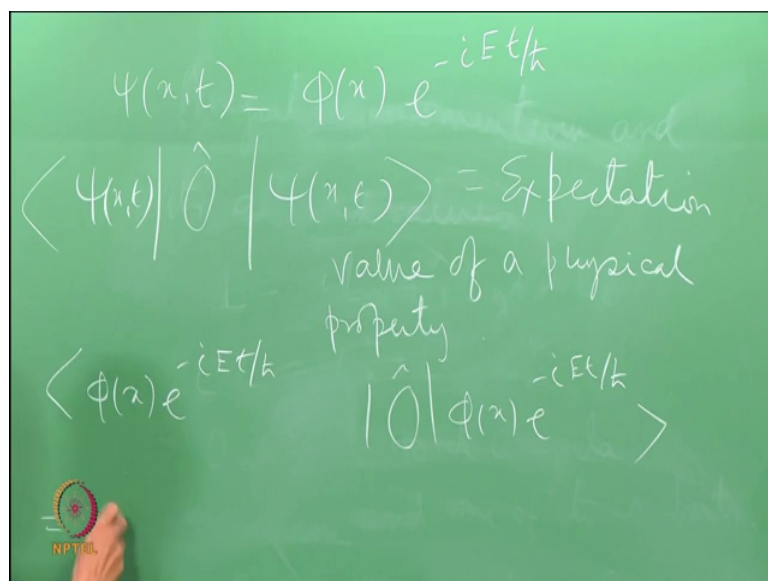 Ψ(x,t) = φ(x) e^{-iEt/ħ}
⟨Ψ(x,t)| Ô |Ψ(x,t)⟩ = Expectation
value of a physical
property.
⟨φ(x) e^{-iEt/ħ} |Ô| φ(x) e^{-iEt/ħ}⟩
=
NPTEL